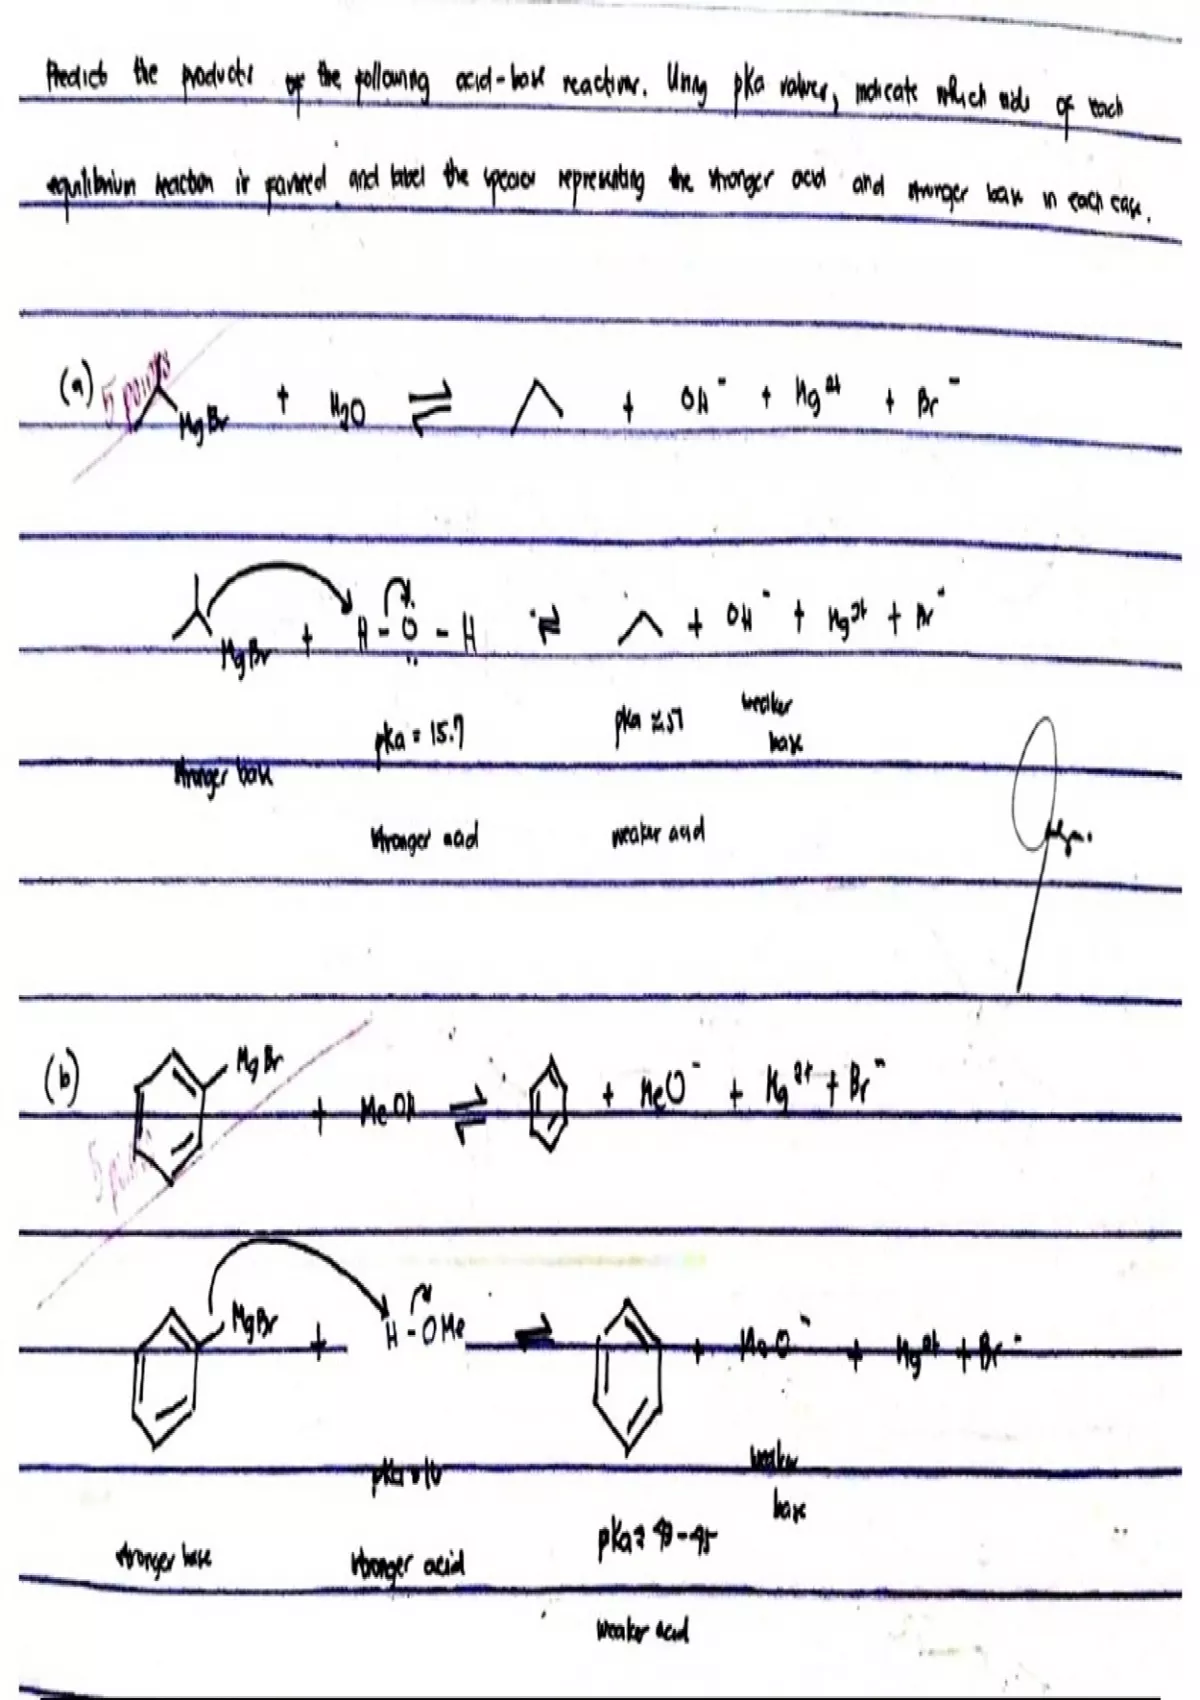 Predict the products of the following acid-base reactions. Using pKa values, indicate which side of each
equilibrium reaction is favored and label the species representing the stronger acid and stronger base in each case.
(a) 5 points MgBr + H2O ⇌ + OH⁻ + Mg²⁺ + Br⁻
MgBr + H - O - H ⇌ + OH⁻ + Mg²⁺ + Br⁻
pKa = 15.7 pKa ≈ 51 weaker
stronger base base
stronger acid weaker acid
(b) MgBr + MeOH ⇌ + MeO⁻ + Mg²⁺ + Br⁻
5
MgBr + H - OMe ⇌ + MeO⁻ + Mg²⁺ + Br⁻
pKa = 16 weaker
base
stronger base stronger acid pKa
weaker acid